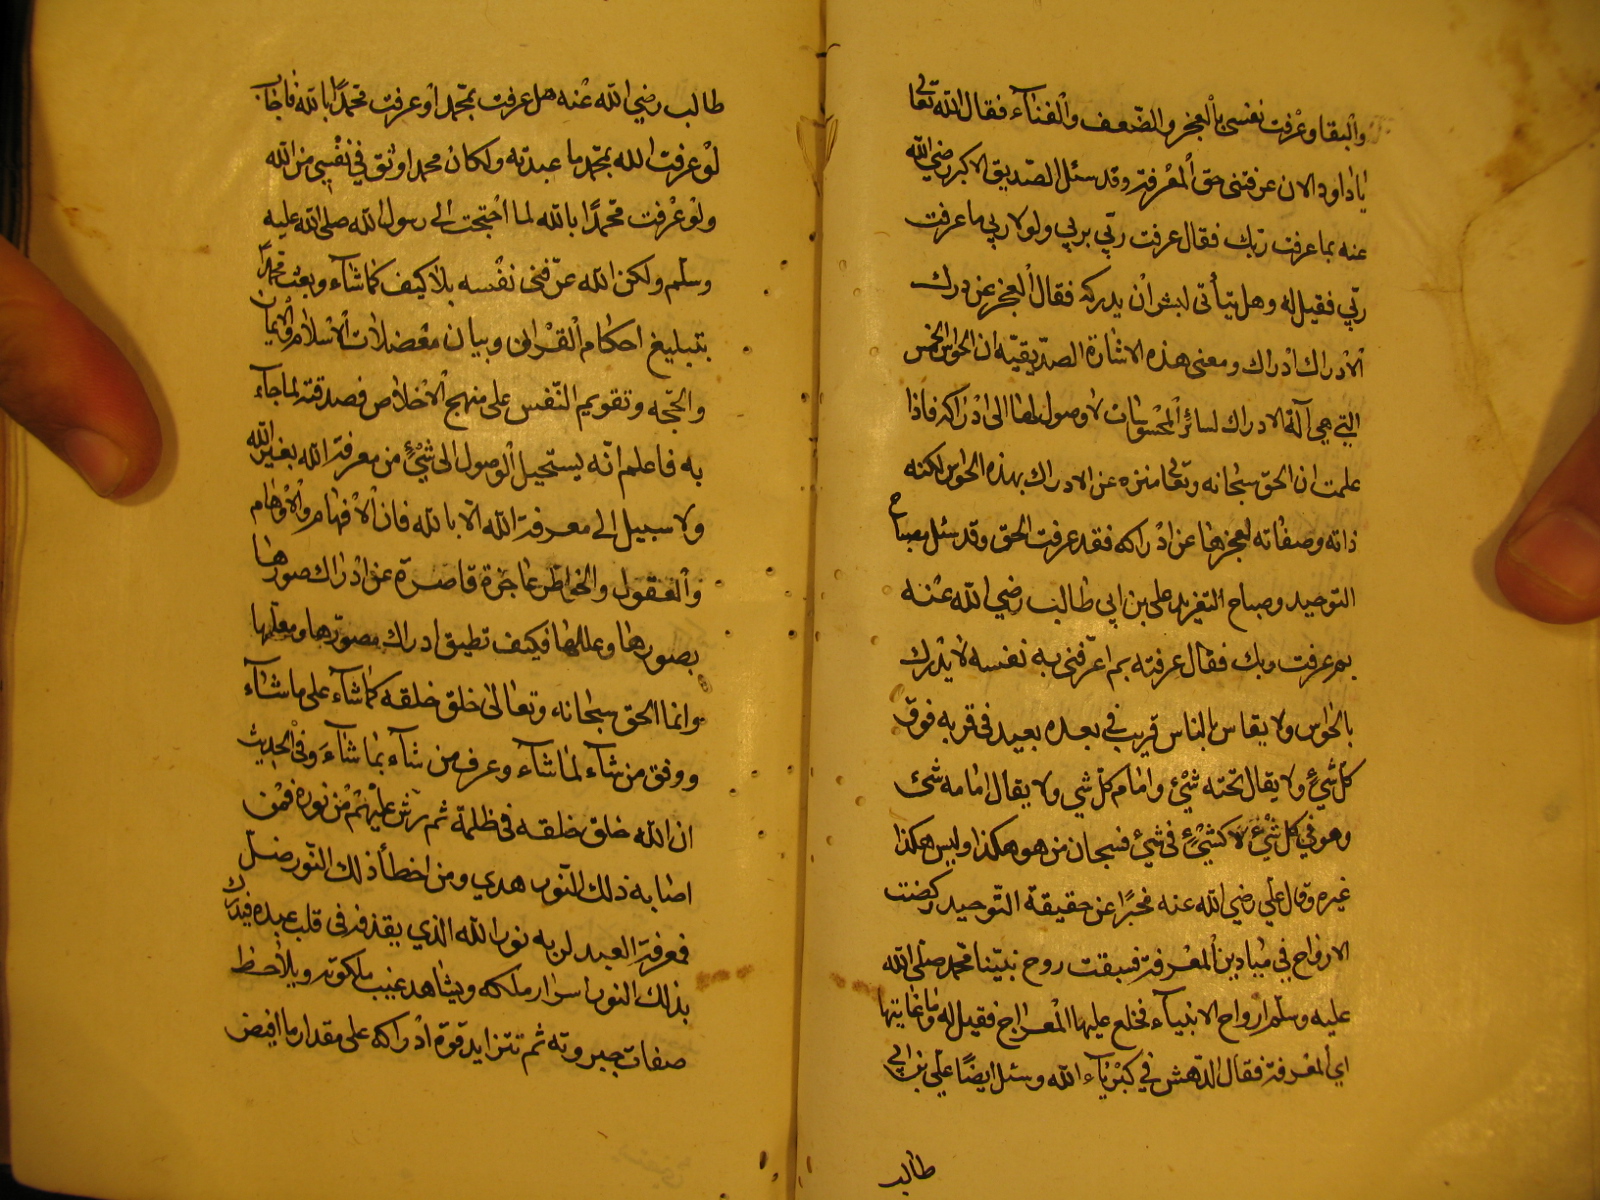 والبقا وعرفت نفسي بالعجز والضعف والفناء فقال الله تعالى
يا داود الان عرفتني حق المعرفة وقد سئل الصديق الاكبر رضي الله
عنه بما عرفت ربك فقال عرفت ربي بربي ولولا ربي ما عرفت
ربي فقيل له وهل يتأتى لبشر ان يدركه فقال العجز عن درك
الادراك ادراك ومعنى هذه الاشارة الصديقيه ان الحواس الخمس
التي هي آلة الادراك لسائر المحسوسات لا وصول لها الى ادراكه فاذا
علمت ان الحق سبحانه وتعالى منزه عن الادراك بهذه الحواس لكنه
ذاته وصفاته لعجزها عن ادراكه فقد عرفت الحق وقد سئل مصباح
التوحيد وصباح التفريد علي بن ابي طالب رضي الله عنه
بم عرفت ربك فقال عرفته بما عرفني به نفسه لا يدرك
بالحواس ولا يقاس بالناس قريب في بعده بعيد في قربه فوق
كل شيء ولا يقال تحته شيء وامام كل شي ولا يقال امامه شئ
وهو في كل شيء لا كشيء في شئ فسبحان من هو هكذا وليس هكذا
غيره وقال علي رضي الله عنه مخبرا عن حقيقة التوحيد ركضت
الارواح في ميادين المعرفة فسبقت روح نبينا محمد صلى الله
عليه وسلم ارواح الانبياء فخلع عليها المعراج فقيل له وما غايتها
اي المعرفة فقال الدهش في كبرياء الله وسئل ايضًا علي بن ابي
طالب
طالب رضي الله عنه هل عرفت بمحمد او عرفت محمدًا بالله فاجاب
لو عرفت الله بمحمد ما عبدته ولكان محمد اوثق في نفسي من الله
ولو عرفت محمدًا بالله لما احتجت الى رسول الله صلى الله عليه
وسلم ولكن الله عرفني نفسه بلا كيف كما شاء وبعث محمدًا
بتبليغ احكام القرآن وبيان معضلات الاسلام والايمان
والحجه وتقويم النفس على منهج الاخلاص فصدقته لما جاء
به فاعلم انه يستحيل الوصول الى شيء من معرفة الله بغير الله
ولا سبيل الى معرفة الله الا بالله فان الافهام والاوهام
والعقول والخواطر عاجزة قاصرة عن ادراك صورها
بصورها وعللها فكيف تطيق ادراك مصورها ومعللها
وانما الحق سبحانه وتعالى خلق خلقه كما شاء على ما شاء
ووفق من شاء لما شاء وعرف من شاء بما شاء وفي الحديث
ان الله خلق خلقه في ظلمة ثم رش عليهم من نوره فمن
اصابه ذلك النور هدي ومن اخطأ ذلك النور ضل
فمعرفة العبد لربه نور الله الذي يقذفه في قلب عبده فيدرك
بذلك النور اسرار ملكه ويشاهد غيب ملكوته ويلاحظ
صفات جبروته ثم تتزايد قوة ادراكه على مقدار ما افيض